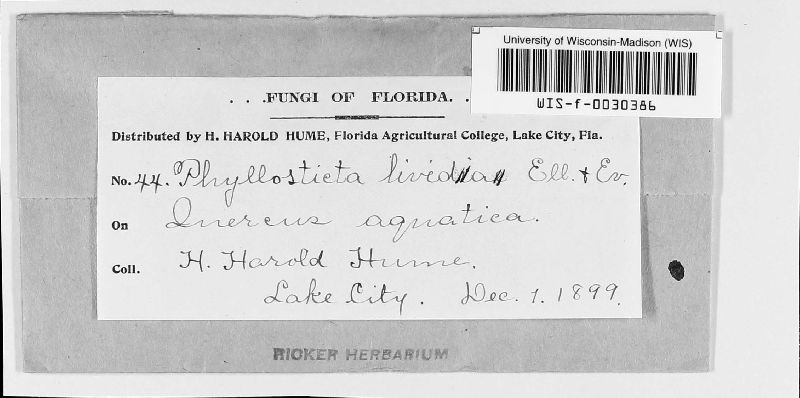 University of Wisconsin-Madison (WIS)
WIS-f-0030386
. . .FUNGI OF FLORIDA. .
Distributed by H. HAROLD HUME, Florida Agricultural College, Lake City, Fla.
No. 44. Phyllosticta livida Ell. & Ev.
On Quercus aquatica.
Coll. H. Harold Hume.
Lake City. Dec. 1. 1899.
RICKER HERBARIUM